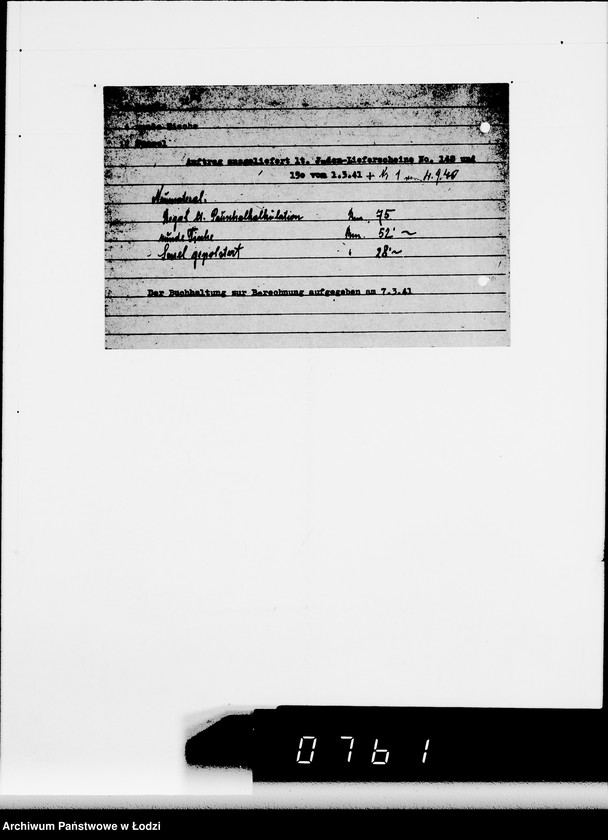 Tische
Sessel
Auftrag ausgeliefert lt. Juden-Lieferscheine No. 148 und
150 vom 1.3.41 + № 1 vom 4.9.40
Neumaterial.
lt. Pauschalkalkulation Rm. 75
runde Tische Rm. 52'~
Sessel gepolstert " 28'~
Der Buchhaltung zur Berechnung aufgegeben am 7.3.41
0761
Archiwum Państwowe w Łodzi